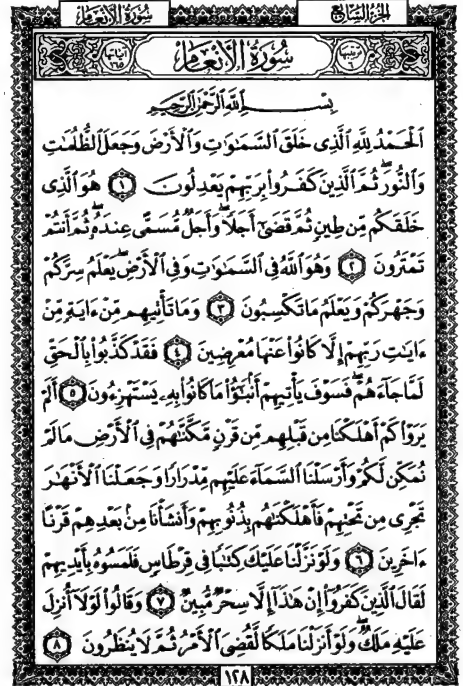 الجزء السابع
سورة الأنعام
ترتيبها ٦
سُورَةُ الأَنْعَامِ
آياتها ١٦٥
بِسْمِ اللَّهِ الرَّحْمَٰنِ الرَّحِيمِ
الْحَمْدُ لِلَّهِ الَّذِى خَلَقَ السَّمَٰوَٰتِ وَالْأَرْضَ وَجَعَلَ الظُّلُمَٰتِ
وَالنُّورَ ۖ ثُمَّ الَّذِينَ كَفَرُوا۟ بِرَبِّهِمْ يَعْدِلُونَ ١ هُوَ الَّذِى
خَلَقَكُم مِّن طِينٍ ثُمَّ قَضَىٰٓ أَجَلًا ۖ وَأَجَلٌ مُّسَمًّى عِندَهُۥ ۖ ثُمَّ أَنتُمْ
تَمْتَرُونَ ٢ وَهُوَ اللَّهُ فِى السَّمَٰوَٰتِ وَفِى الْأَرْضِ ۖ يَعْلَمُ سِرَّكُمْ
وَجَهْرَكُمْ وَيَعْلَمُ مَا تَكْسِبُونَ ٣ وَمَا تَأْتِيهِم مِّنْ ءَايَةٍ مِّنْ
ءَايَٰتِ رَبِّهِمْ إِلَّا كَانُوا۟ عَنْهَا مُعْرِضِينَ ٤ فَقَدْ كَذَّبُوا۟ بِالْحَقِّ
لَمَّا جَآءَهُمْ ۖ فَسَوْفَ يَأْتِيهِمْ أَنۢبَٰٓؤُا۟ مَا كَانُوا۟ بِهِۦ يَسْتَهْزِءُونَ ٥ أَلَمْ
يَرَوْا۟ كَمْ أَهْلَكْنَا مِن قَبْلِهِم مِّن قَرْنٍ مَّكَّنَّٰهُمْ فِى الْأَرْضِ مَا لَمْ
نُمَكِّن لَّكُمْ وَأَرْسَلْنَا السَّمَآءَ عَلَيْهِم مِّدْرَارًا وَجَعَلْنَا الْأَنْهَٰرَ
تَجْرِى مِن تَحْتِهِمْ فَأَهْلَكْنَٰهُم بِذُنُوبِهِمْ وَأَنشَأْنَا مِنۢ بَعْدِهِمْ قَرْنًا
ءَاخَرِينَ ٦ وَلَوْ نَزَّلْنَا عَلَيْكَ كِتَٰبًا فِى قِرْطَاسٍ فَلَمَسُوهُ بِأَيْدِيهِمْ
لَقَالَ الَّذِينَ كَفَرُوٓا۟ إِنْ هَٰذَآ إِلَّا سِحْرٌ مُّبِينٌ ٧ وَقَالُوا۟ لَوْلَآ أُنزِلَ
عَلَيْهِ مَلَكٌ ۖ وَلَوْ أَنزَلْنَا مَلَكًا لَّقُضِىَ الْأَمْرُ ثُمَّ لَا يُنظَرُونَ ٨
١٢٨